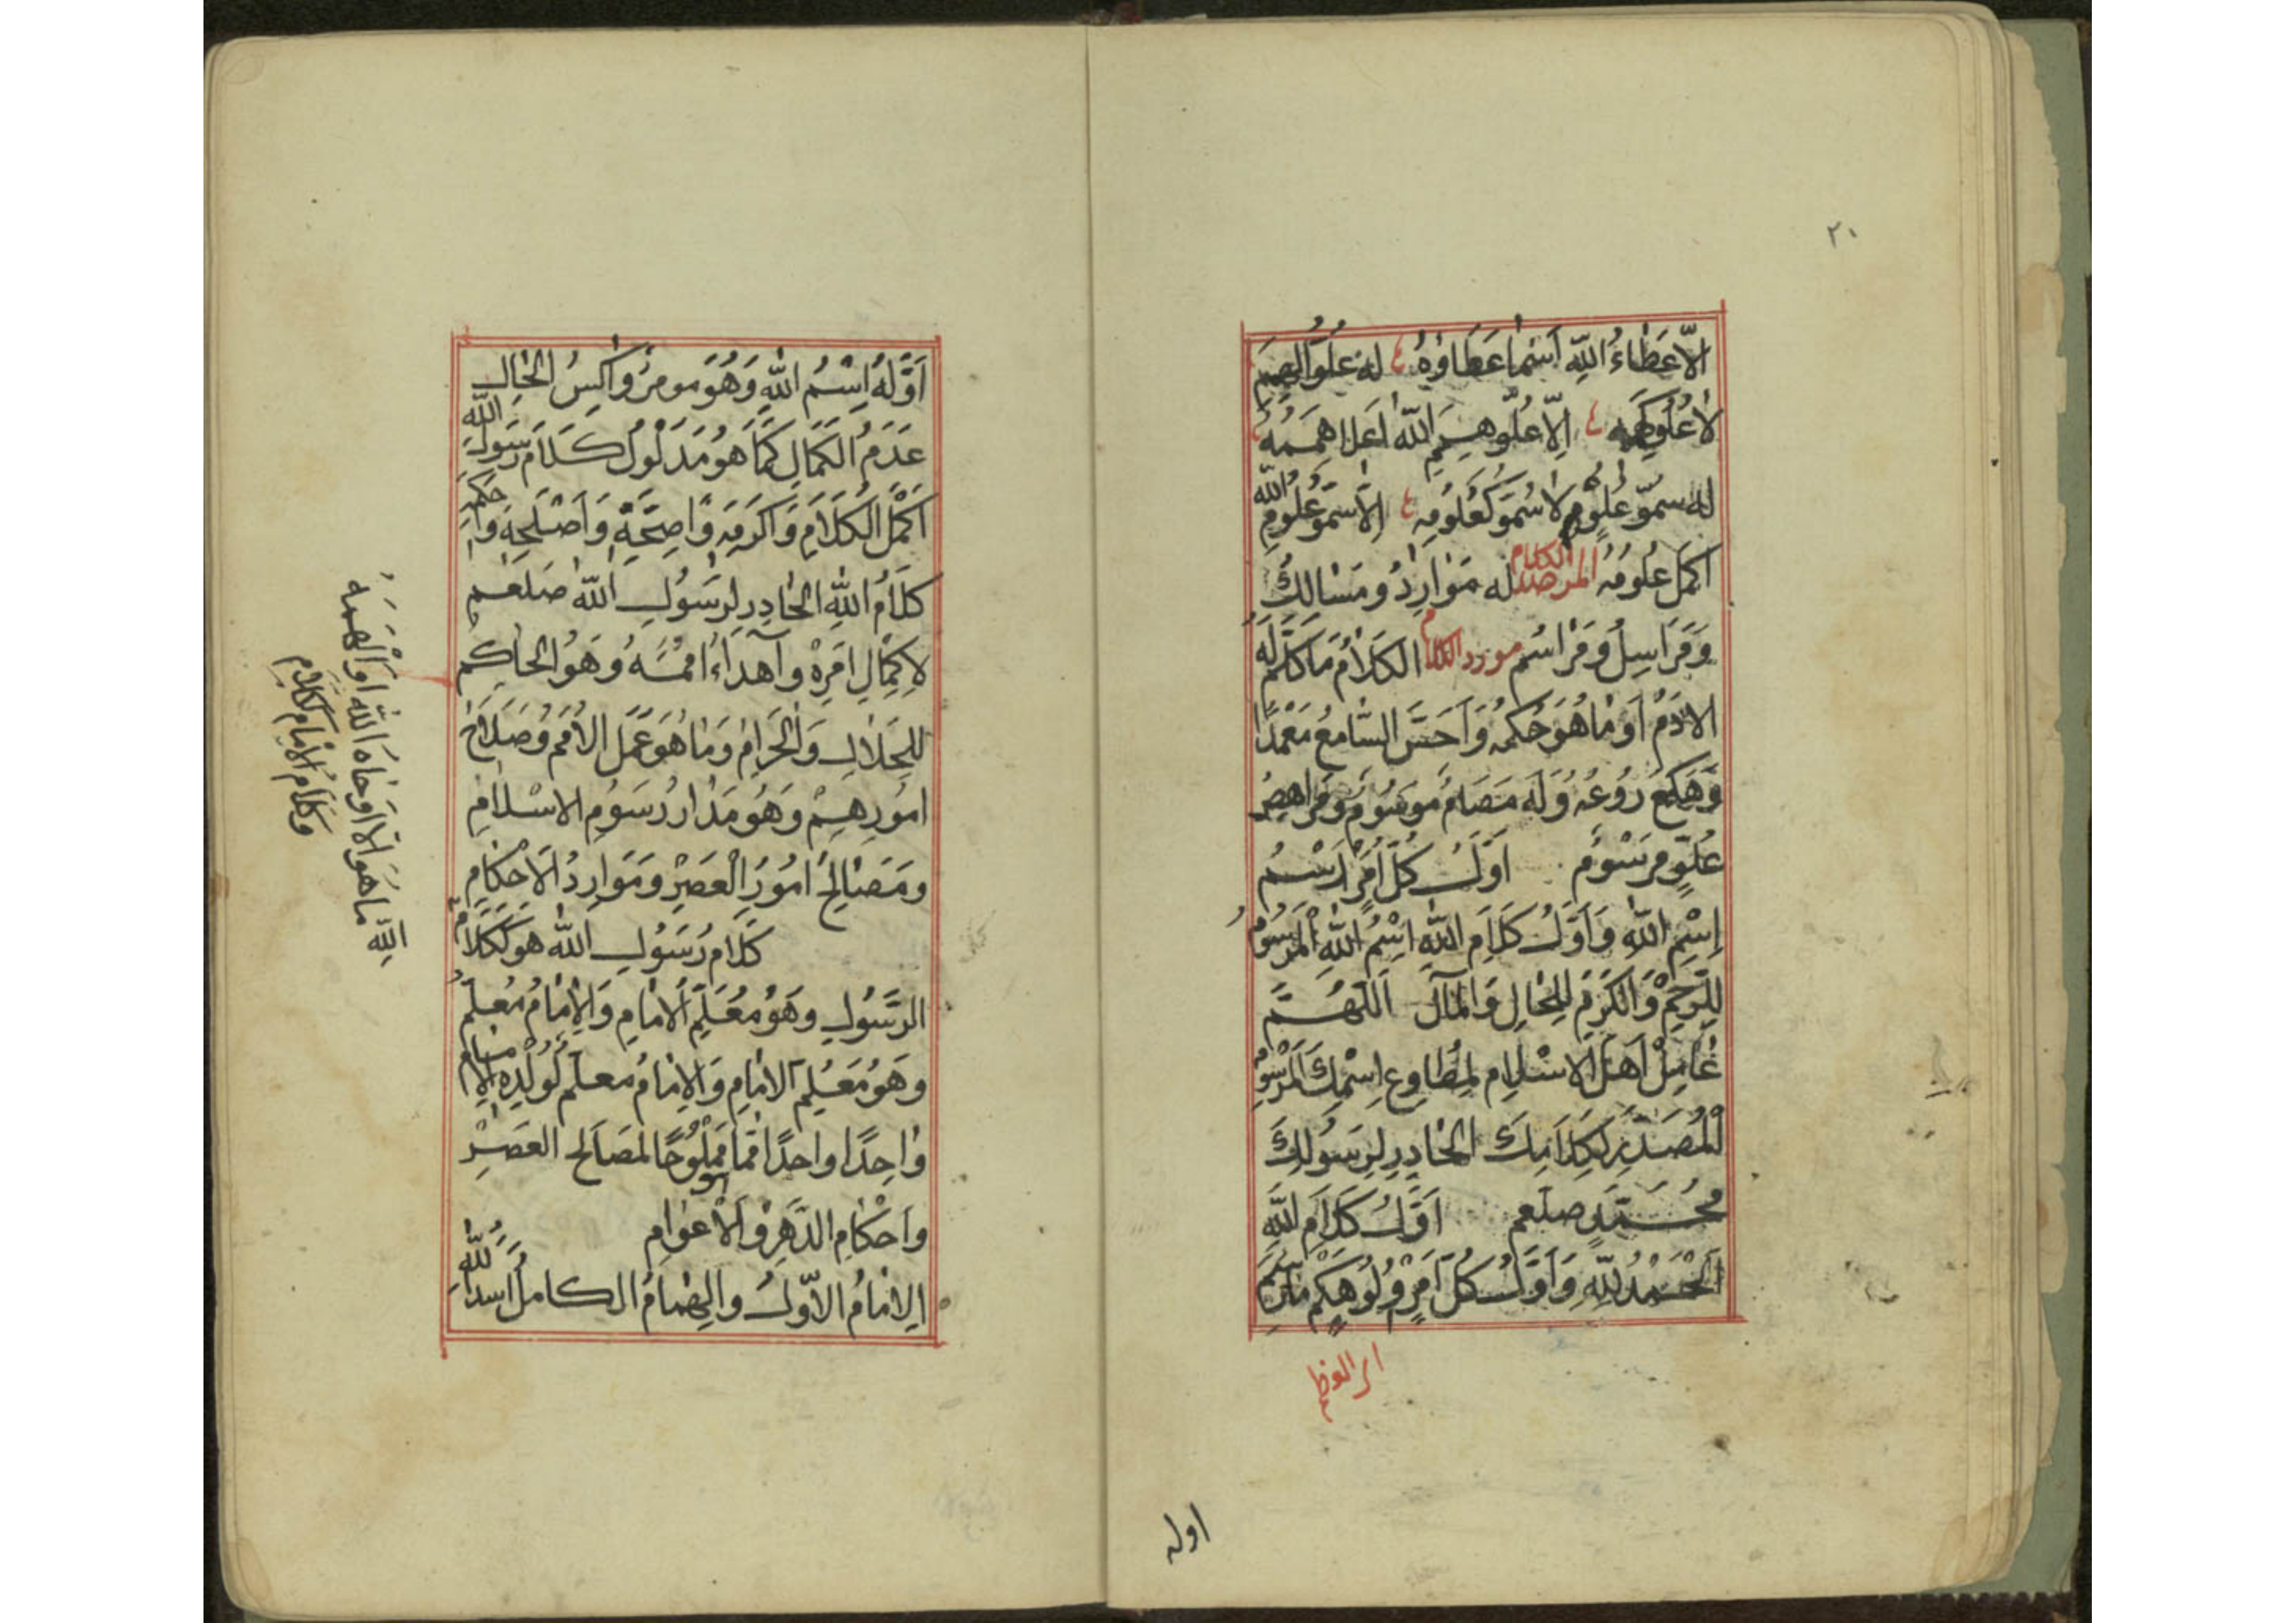 ٢٠
الّا عَطاءُ اللّه اَسْما عَطَاؤهُ ع له عُلُوّ الهِمَمِ
لا عُلُوّ كَهِمَمِه ع اِلّا عُلُوّ هِمَمِ اللّه اَعلا هِمَمهُ
له سمُوّ عُلُومٍ لا سُمُوّ كَعُلُومِه ع اِلّا سُمُوّ عُلُومِ اللّه
اكمَل عُلُومُه المرصد الكلام له مَوارِدُ ومَسَالِكُ
وَمَرَاسِلُ وَمَرَاسُم مورد الكلام الكَلامُ مَا كَلّمَ لَهُ
الادَمُ اَو مَا هُوَ حُكمُه وَاَحَسَّ السَّامعُ مَعْمَدًا
وَهَكَعَ رُوعُه وَلَه مَصَامُ مَوسُومٌ وَمَرَاهِصُ
عُلُوٍّ مرسُومٌ اَوَّلُ كُلّ اَمْرٍ رَسْمُ
اِسْمِ اللّه وَاَوَّلُ كَلَامِ اللّهِ اِسْمُ اللّهِ المَرسُومُ
لِلرّحْمِ وَالكَرَمِ لِلحَالِ وَالمَآل اَللّهُمَّ
عَامِلْ اَهلَ الاسْلَامِ لِمُطَاوِعِ اِسْمِكَ المَرْسُومِ
المُصَدَّرِ لِكَلَامِكَ الحَادِرِ لِرَسُولِكَ
مُحَمَّدٍ صَلعَم اَوّلُ كَلَامِ اللّهِ
اَلْحَمْدُ لِلّهِ وَاَوَّلُ كُلّ اَمرٍ وُلُوهِكُم مَا رُسِمَ
اوله
اَوَّلهُ اِسْمُ اللّهِ وَهُوَ مومرُ وَاكِسُ الحَالِ
عَدَمُ الكَمَالِ كَمَا هُوَ مَدلُولُ كَلَامِ رَسُولِ اللّه
اَكْمَل الكَلَامِ وَاَكرَمِه وَاَصِحِّهِ وَاَصْلَحِهِ وَاَحكَمِ
كلَامُ اللّهِ الحَادِرِ لِرَسُولِ اللّه صَلعَم
لِاِكمَالِ اَمرِهْ وَاهدَاءُ اُممُهُ وَهُوَ الحَاكِمُ
لِلحَلَالِ وَالحَرَامِ وَمَا هُوَ عَمَل الاُمَم وَصَلَاحُ
اُمورِهِمْ وَهُوَ مَدَار رُسُومِ الاسْلامِ
ومَصَالِحُ اُمُورِ العَصْرِ ومَوَارِدُ الاَحكَامِ
كَلَام رَسُولِ اللّه هو كَكَلَامُ
الرّسُولِ وهَوُ مُعَلّمِ الامَامِ وَالامَامُ مُعلمُ
وهَوُ مُعَلِّم الامَامِ وَالامَامُ معلّم لِوَلَدِهِ الامام
وَاحِدًا واحدًا لمصَالح العَصْرِ
واَحْكَامِ الدَّهرِ وَالاَعوَامِ
الامَامُ الاَوّلُ والهُمَامُ الكَامل اسَدُ اللّهِ
اللّه مَا هُوَ اِلّا اَوحَاهُ اللّه اَو اَلهَمَهُ
وَكَلَام الامَامِ كَكَلَامِ